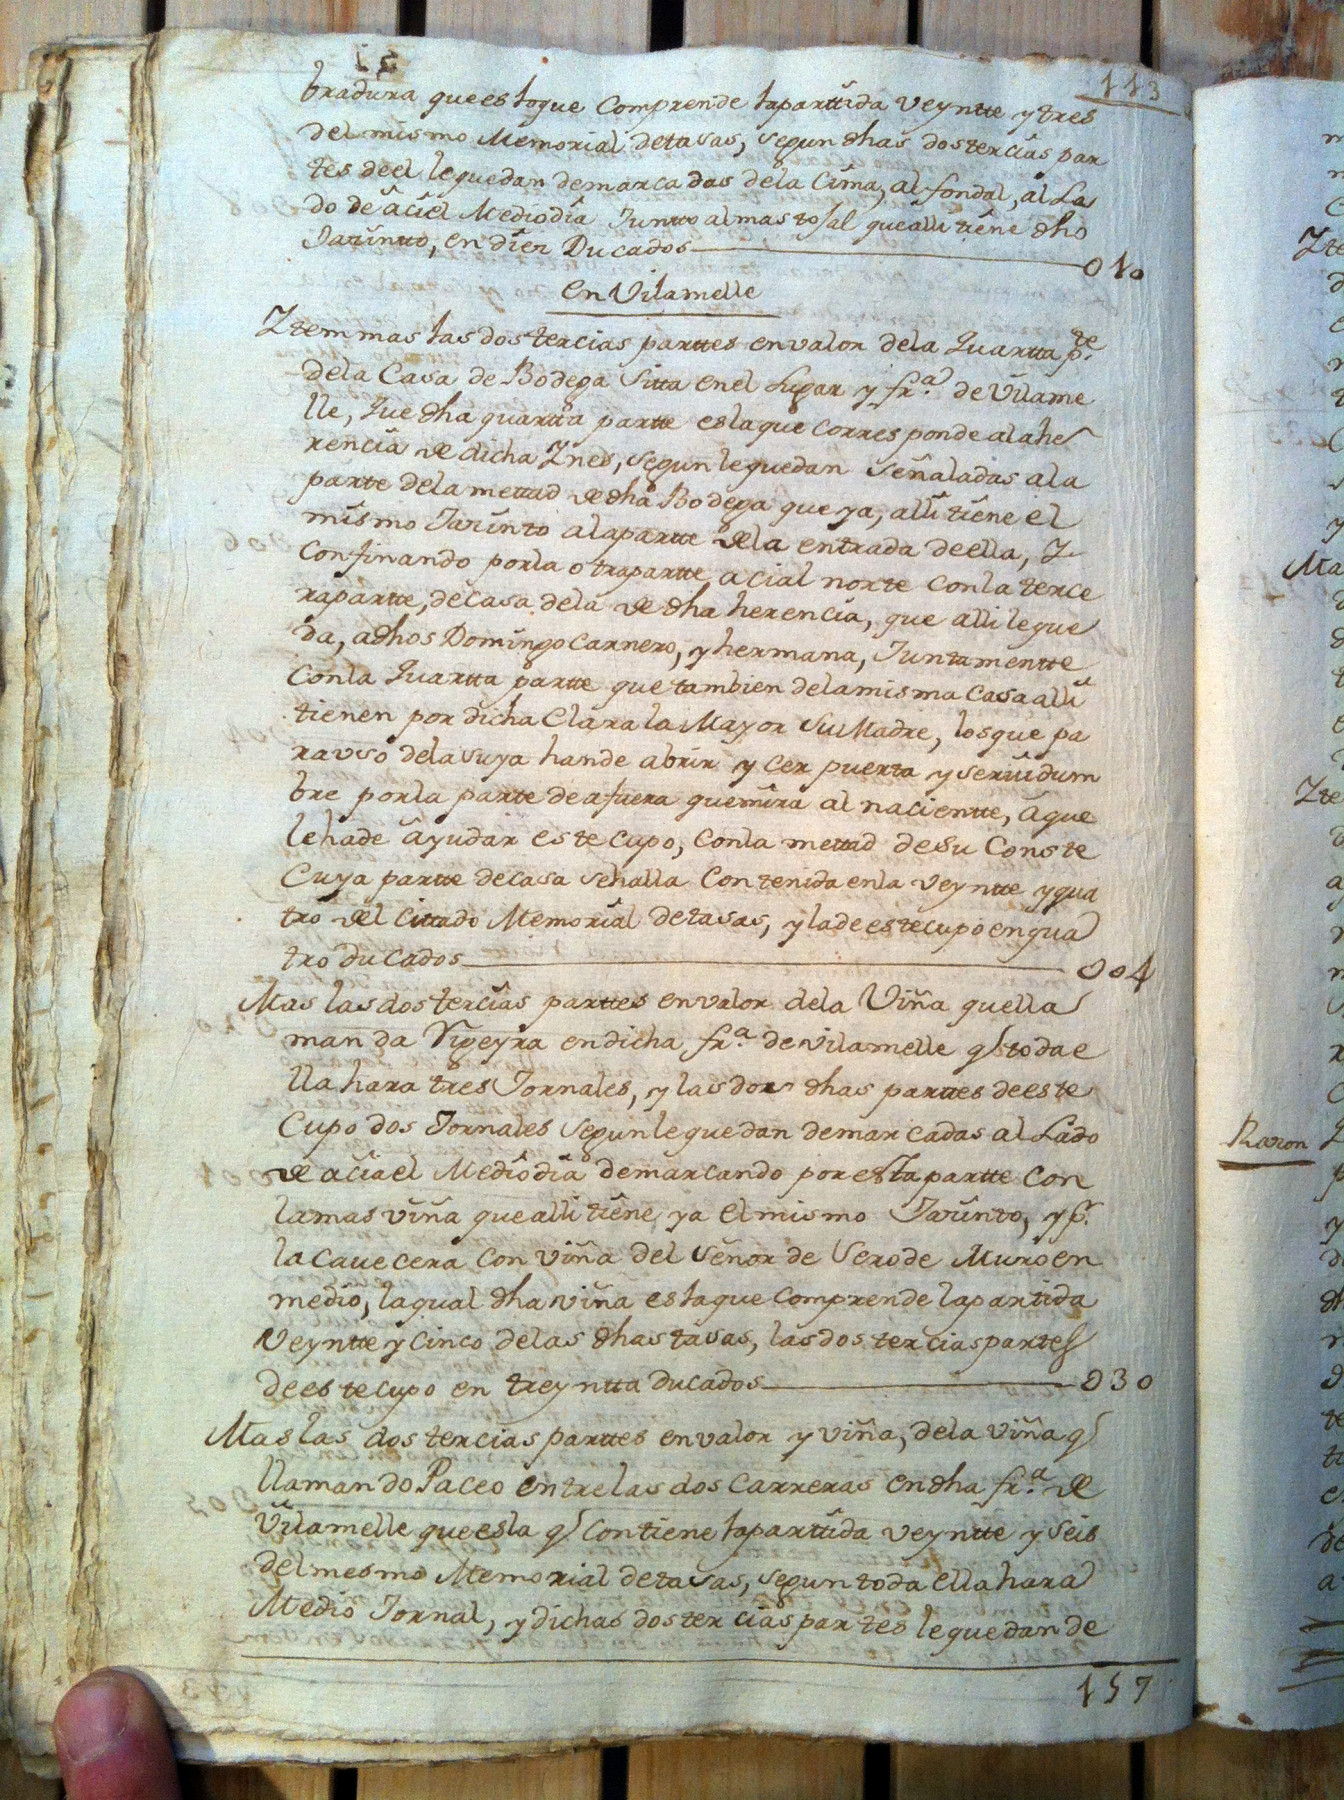 113
bradura que es loque Comprende lapartida veyntte y tres
del mismo Memorial detasas, segun dhas dos tercias par
tes de el le quedan demarcadas dela Cima, al fondal, al La
do de ãciel Mediodia Juntto almas tosal que alli tiene dho
Jazintto, en diez Ducados 010
en Vilamelle
Ittem mas las dos tercias parttes en valor dela Quartta p.te
dela Casa de Bodega Sitta en el Lugar y fr.a de Vilame
lle, que dha quartta partte es la que corresponde a la he
rencia de dicha Ines, segun le quedan señaladas a la
parte dela mettad de dha Bodega que ya, alli tiene el
mismo Jazinto a la partte de la entrada de ella, Y
Confinando por la otra partte acia el norte con la terce
ra partte, de casa dela de dha herencia, que alli le que
da, a dhos Domingo Carnero, y hermana, Juntamentte
Con la Quartta partte que tambien de la misma Casa alli
tienen por dicha Clara la Mayor Su Madre, los que pa
ra vso dela suya han de abrir y cer puerta y seruidum
bre por la parte de afuera que mira al nacientte, a que
le ha de ayudar este cupo, con la mettad de su Conste
Cuya partte de casa se halla Contenida en la veyntte y qua
tro del Cittado Memorial de tasas, y la de este cupo en qua
tro ducados 004
Mas las dos tercias parttes en valor de la Viña que lla
man da Figeyra en dicha fr.a de vilamelle q toda e
lla hara tres Jornales, y las dos dhas parttes de este
Cupo dos Jornales segun le quedan demarcadas al Lado
de acia el Mediodia demarcando por esta partte con
la mas viña que alli tiene ya el mismo Jazinto, y p.r
la cauecera con viña del señor de Verode Muro en
medio, la qual dha viña es la que comprende la partida
Veyntte y cinco de las dhas tasas, las dos tercias partes
de este cupo en treyntta ducados 030
Mas las dos tercias parttes en valor y viña, de la viña q
llaman do Paceo entre las dos carreras en dha fr.a de
Vilamelle que es la q contiene la partida veyntte y seis
del mesmo Memorial de tasas, segun toda ella hara
Medio Jornal, y dichas dos tercias partes le quedan de
157
Razon